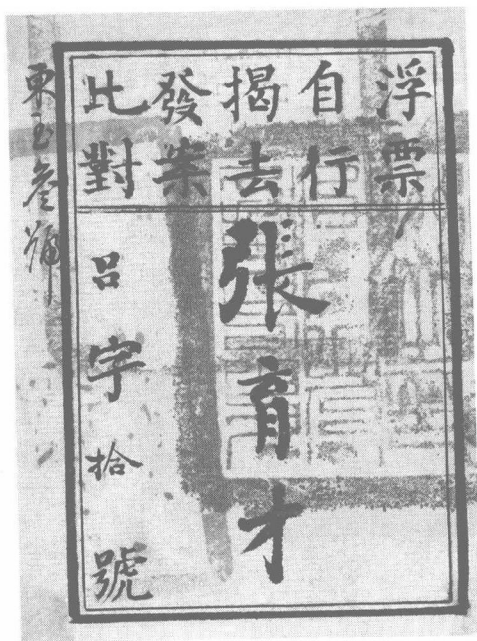 浮票
自行
揭去
發案
比對
張育才
呂字拾號
東玉叁號